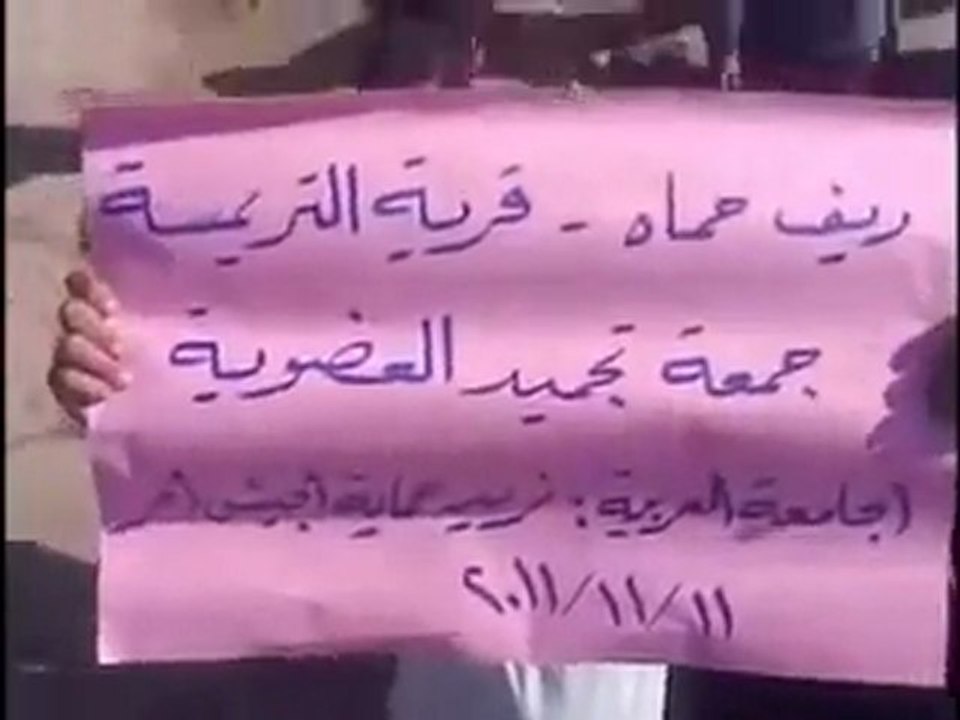 ريف حماه - قرية التريمسة
جمعة تجميد العضوية
الجامعة العربية: نريد حماية الجيش الحر
٢٠١١/١١/١١